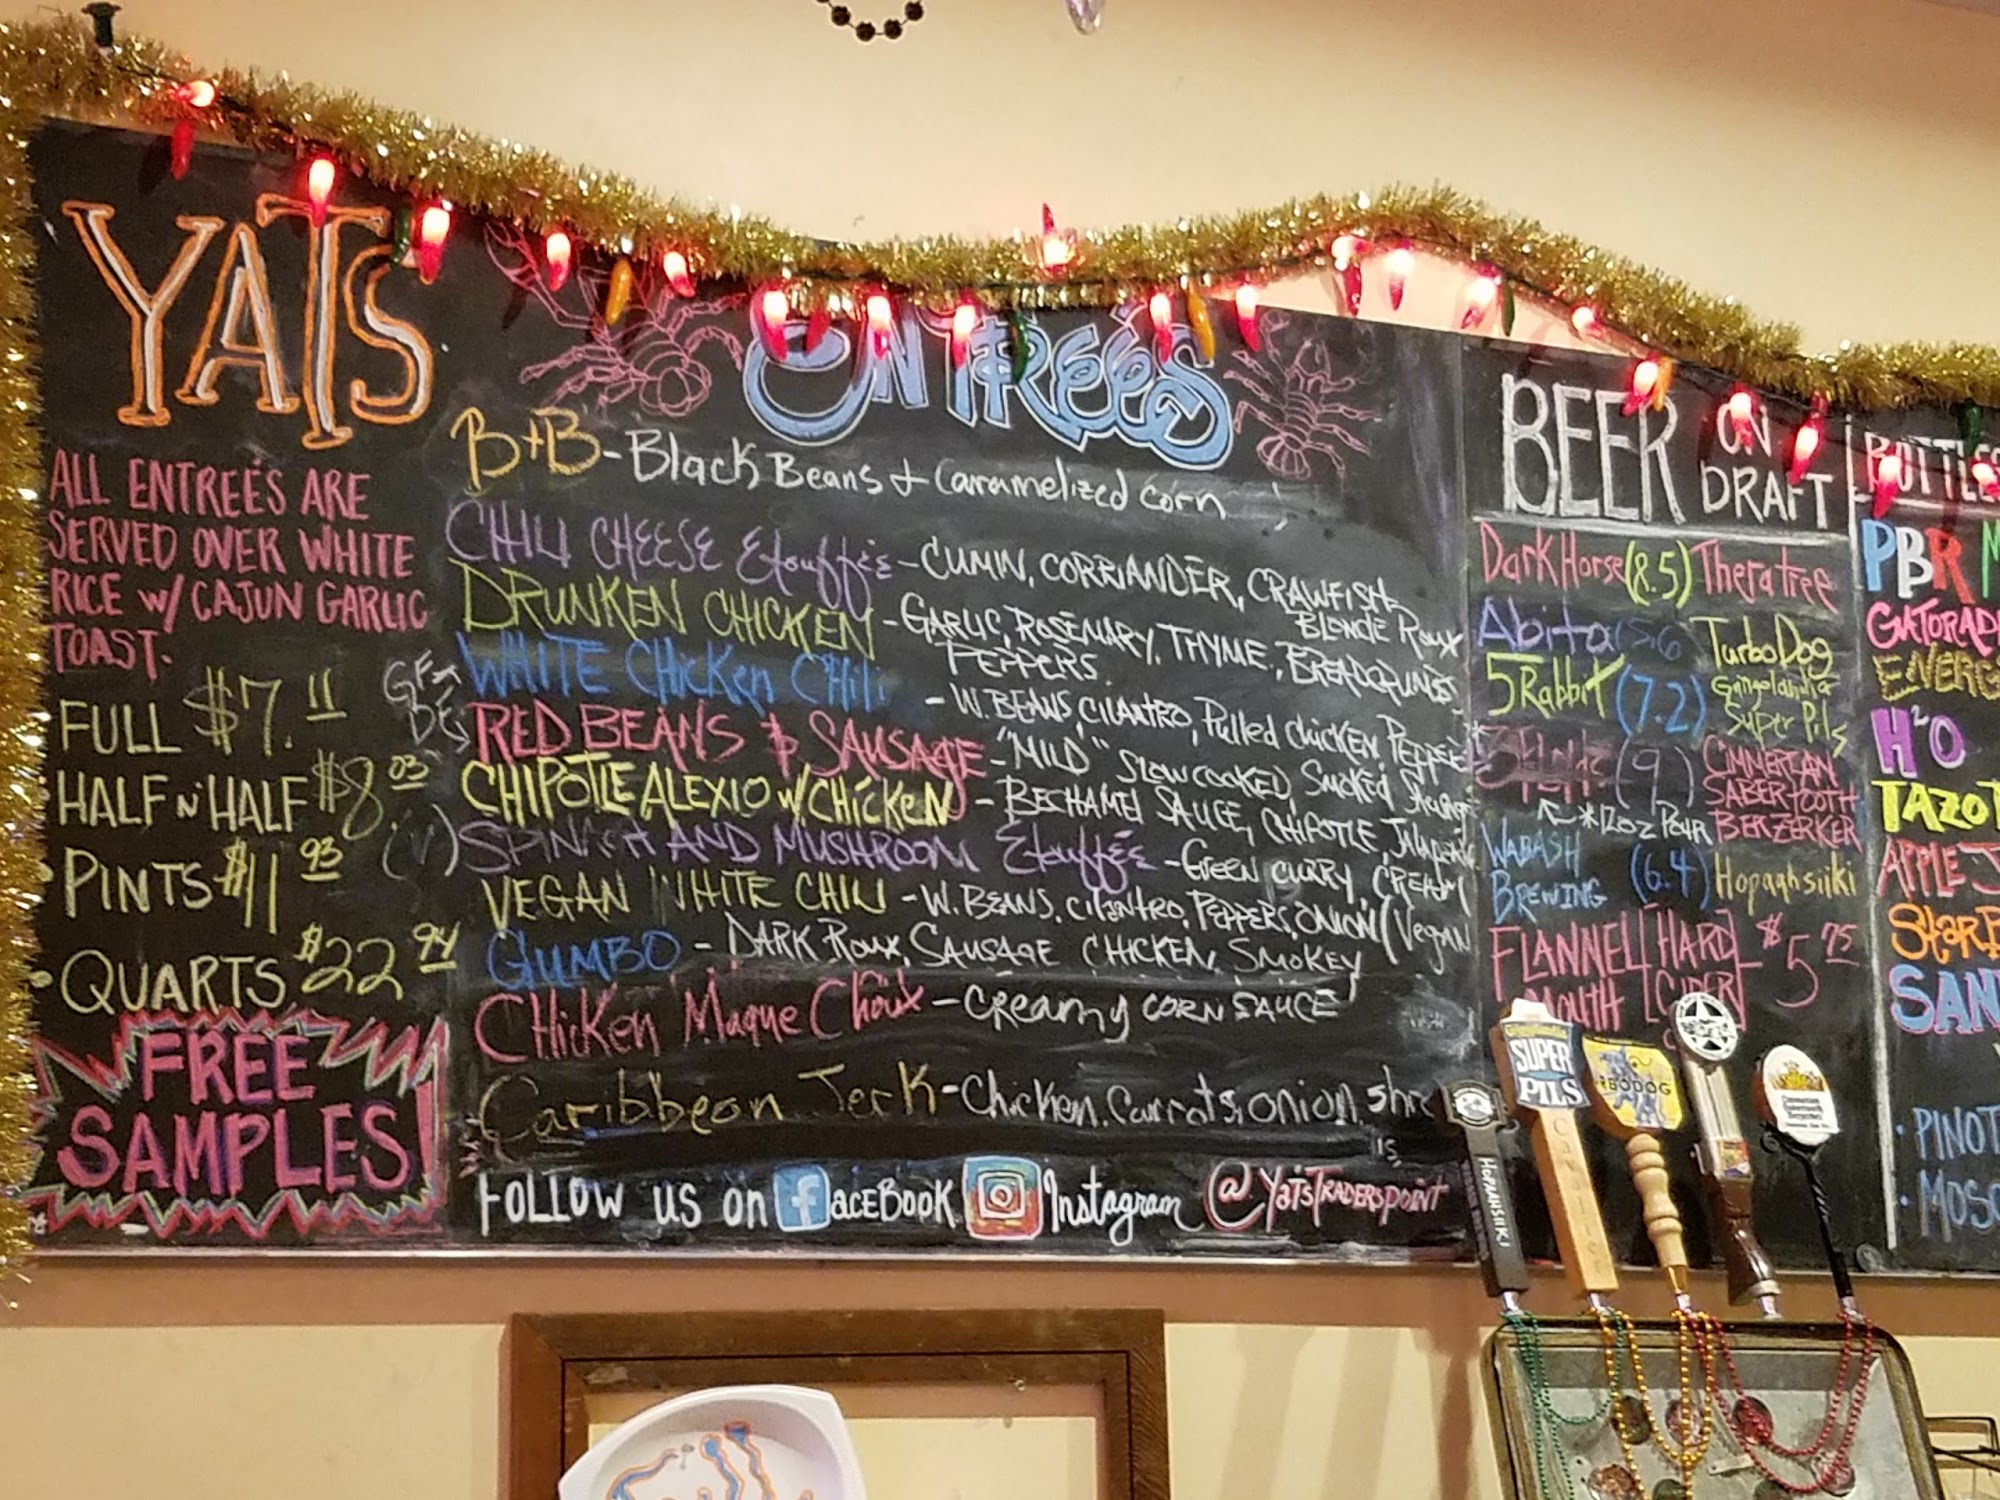 YATS
ALL ENTREÉS ARE
SERVED OVER WHITE
RICE w/ CAJUN GARLIC
TOAST.
FULL $7.11
HALF N' HALF $8.03
PINTS $11.93
QUARTS $22.94
FREE
SAMPLES
ENTREÉS
B+B - Black Beans + Caramelized Corn
CHILI CHEESE Étouffée - CUMIN, CORRIANDER, CRAWFISH,
BLONDE ROUX
DRUNKEN CHICKEN - GARLIC, ROSEMARY, THYME, BREADCRUMBS,
PEPPERS.
GF
WHITE CHICKEN CHILI - W. BEANS, CILANTRO, Pulled Chicken, PEPPERS
RED BEANS & SAUSAGE - "MILD" SLOW COOKED, SMOKED
CHIPOTLE ALEXIO w/ CHICKEN - BECHAMEL SAUCE, CHIPOTLE, JALAPEÑO
(V) SPINACH AND MUSHROOM Étouffée - GREEN CURRY, CREAM
VEGAN WHITE CHILI - W. BEANS, CILANTRO, PEPPERS, ONION (Vegan
GUMBO - DARK ROUX, SAUSAGE CHICKEN, SMOKEY
CHICKEN Maque Choux - CREAMY CORN SAUCE
Caribbean Jerk - Chicken, Carrots, onion,
FOLLOW US ON faceBOOK Instagram @YATSTRADERSPOINT
BEER ON DRAFT
Dark Horse (8.5) Thera tree
Abita (5.6) TurboDog
5 Rabbit (7.2) Gingolandia
Super Pils
(9.) CIMMERIAN
SABERTOOTH
BERZERKER
*12oz POUR
WABASH
BREWING (6.4) Hopaahsiiki
FLANNEL
MOUTH [HARD CIDER] - $5.75
BOTTLE
PBR
GATORAD
ENERG
H2O
TAZO
APPLE J
STAR
SAN
• PINOT
• MOSC
HOPAAHSIIKI
SUPER
PILS
RBODOG